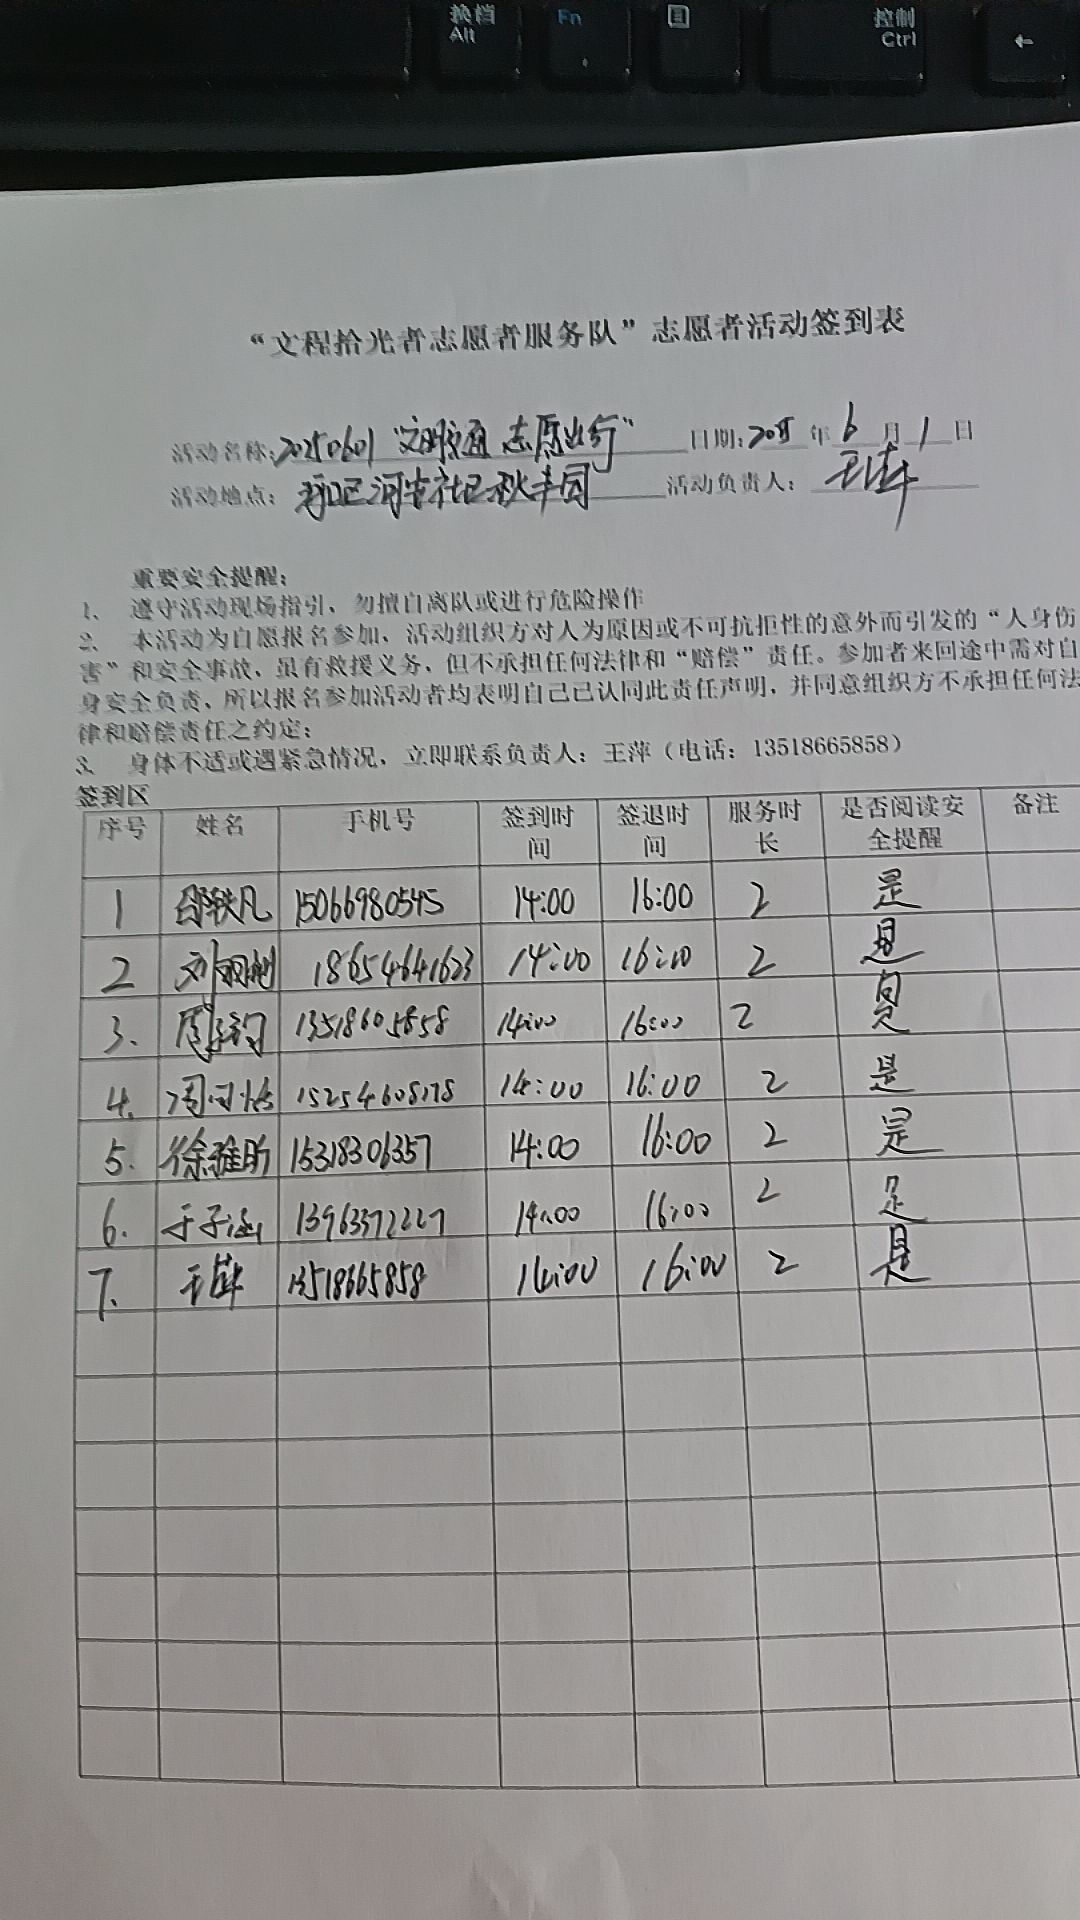 换档
Alt
Fn
控制
Ctrl
←
“文程拾光者志愿者服务队”志愿者活动签到表
活动名称:20250601“文明交通 志愿出行” 日期:2025年6月1日
活动地点: 河口区河安社区秋丰园 活动负责人: 王萍
重要安全提醒:
1、 遵守活动现场指引、勿擅自离队或进行危险操作
2、 本活动为自愿报名参加、活动组织方对人为原因或不可抗拒性的意外而引发的“人身伤
害”和安全事故、虽有救援义务、但不承担任何法律和“赔偿”责任。参加者来回途中需对自
身安全负责、所以报名参加活动者均表明自己已认同此责任声明，并同意组织方不承担任何法
律和赔偿责任之约定;
3、 身体不适或遇紧急情况，立即联系负责人: 王萍（电话: 13518665858）
签到区
序号 姓名 手机号 签到时间 签退时间 服务时长 是否阅读安全提醒 备注
1 轶凡 15066980545 14:00 16:00 2 是
2 刘 18654641623 14:00 16:00 2 是
3. 周 13518605858 14:00 16:00 2 是
4. 周 15254608178 14:00 16:00 2 是
5. 徐雅昕 15318306357 14:00 16:00 2 是
6. 于子涵 13963372227 14:00 16:00 2 是
7. 王萍 13518665858 14:00 16:00 2 是